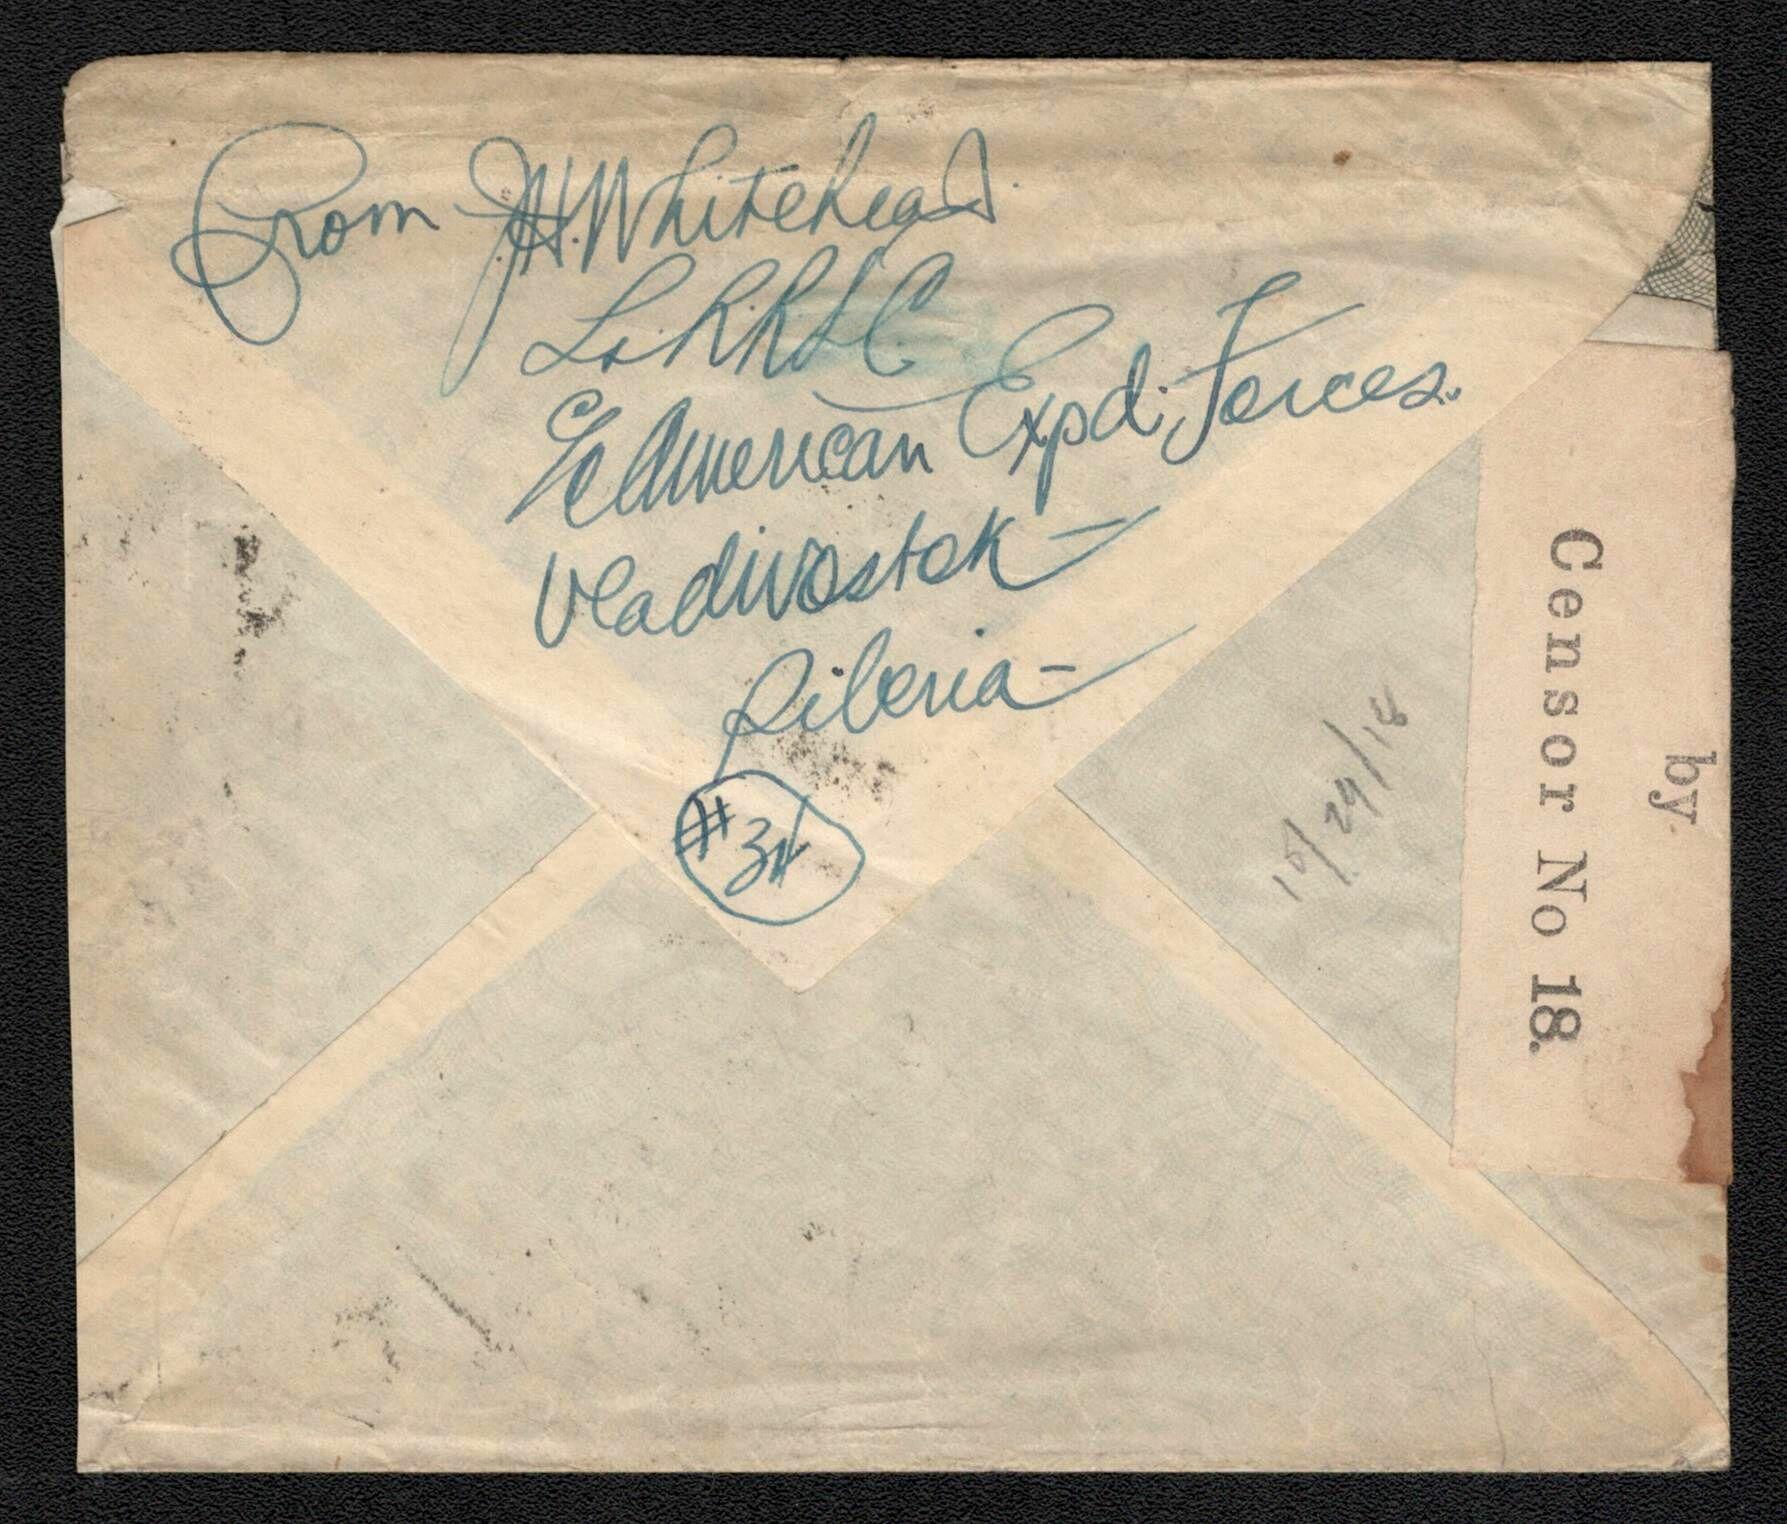 From J.H. Whitehead.
Lt. R.R.S.C.
c/o American Expd. Forces.
Vladivostok —
Siberia —
#34
10/29/18
by
Censor No 18.